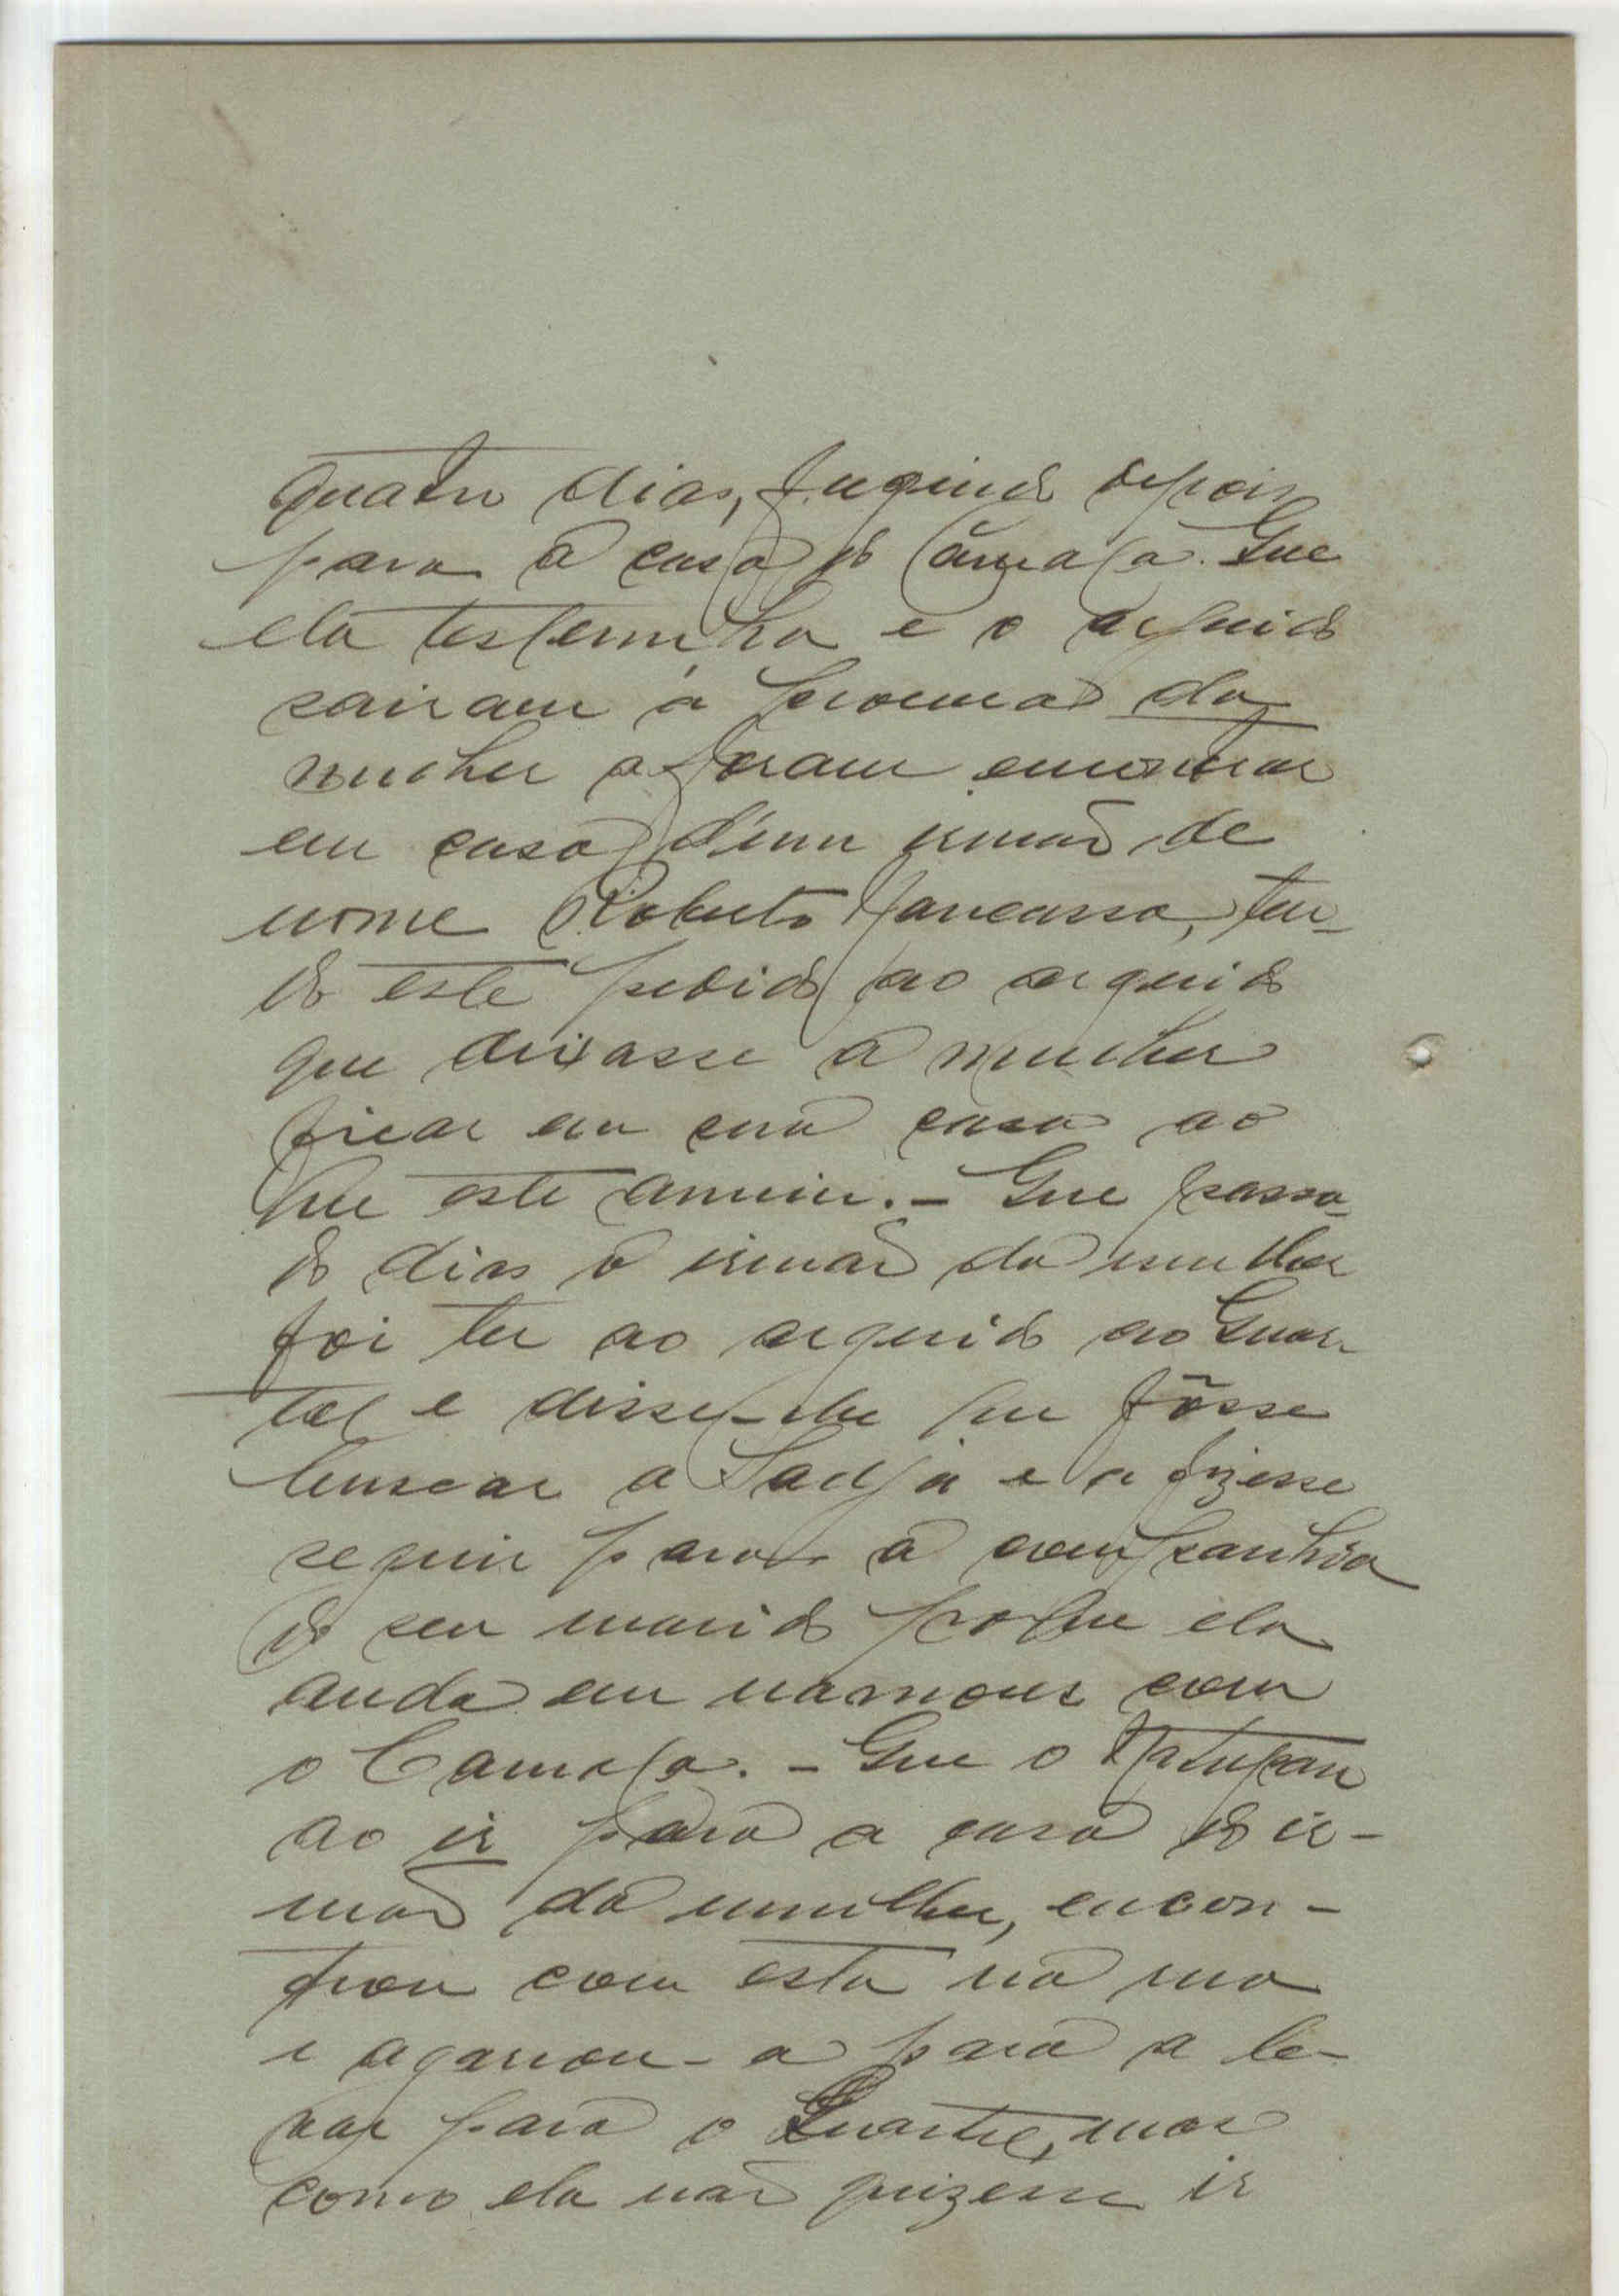 quatro dias, fugindo depois
para a casa do Câmala. Que
ela testemunha e o arguido
sairam á procura da
mulher a foram encontrar
em casa d'um irmão de
nome Roberto, ten-
do este pedido ao arguido
que deixasse a mulher
ficar em sua casa ao
que este anuiu. - Que passa-
do dias o irmão da mulher
foi ter ao arguido ao Quar-
tel e disse-lhe que fôsse
buscar a Sadja e a fizesse
seguir para a companhia
do seu marido porque ela
anda em namoros com
o Camala. - Que o
ao ir para a casa do ir-
mão da mulher, encon-
trou com esta na rua
e agarrou-a para a le-
var para o Quartel, mas
como ela não quizesse ir